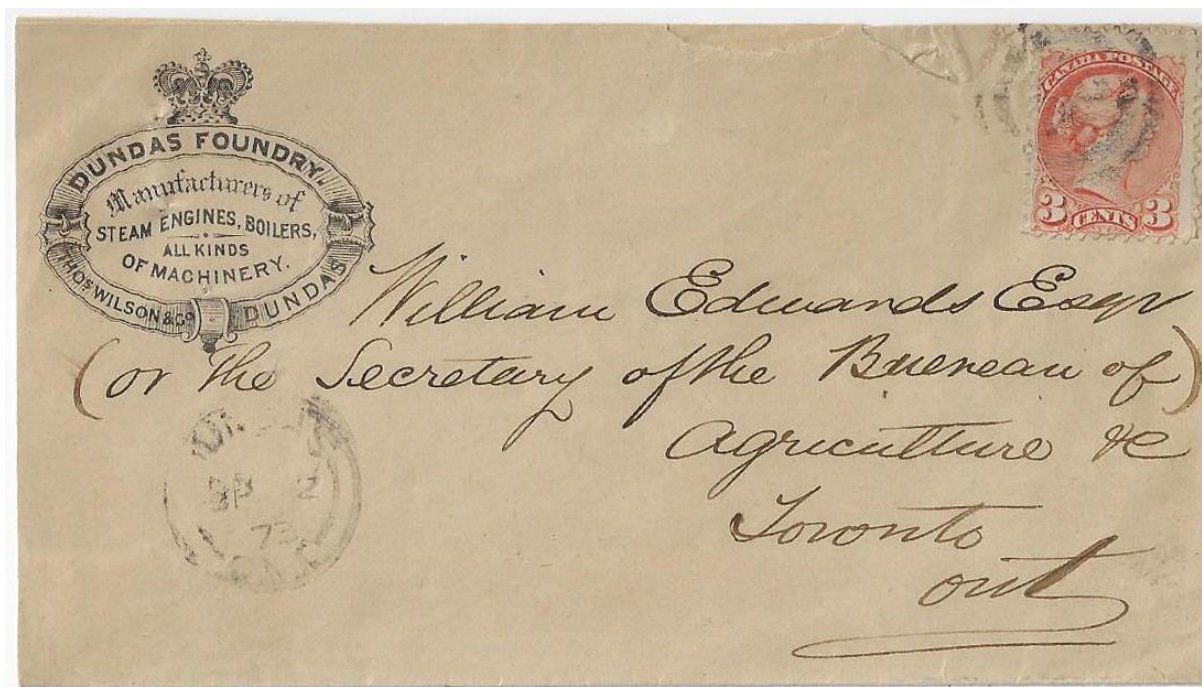 DUNDAS FOUNDRY.
Manufacturers of
STEAM ENGINES, BOILERS,
ALL KINDS
OF MACHINERY.
THOS WILSON & CO DUNDAS
CANADA POSTAGE
3 CENTS 3
William Edwards Esqr
(or the Secretary of the Buereau of)
Agriculture &c
Toronto
Ont
2
73